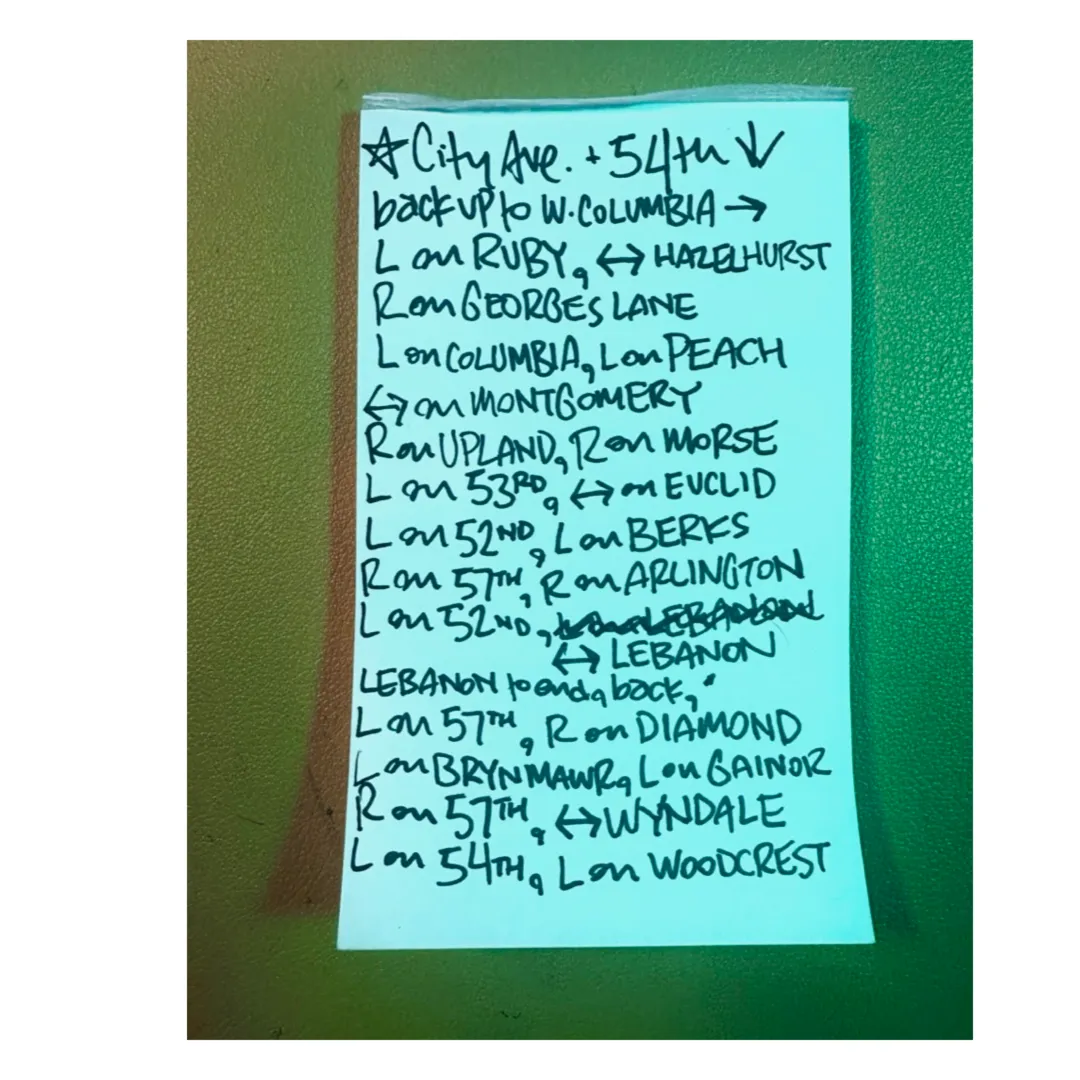 ☆ City Ave. + 54th ↓
back up to W. COLUMBIA →
L on RUBY, ↔ HAZELHURST
R on GEORGES LANE
L on COLUMBIA, L on PEACH
↔ on MONTGOMERY
R on UPLAND, R on MORSE
L on 53RD, ↔ on EUCLID
L on 52ND, L on BERKS
R on 57TH, R on ARLINGTON
L on 52ND, L on LEBANON
↔ LEBANON
LEBANON to end, back,
L on 57TH, R on DIAMOND
L on BRYN MAWR, L on GAINOR
R on 57TH, ↔ WYNDALE
L on 54TH, L on WOODCREST